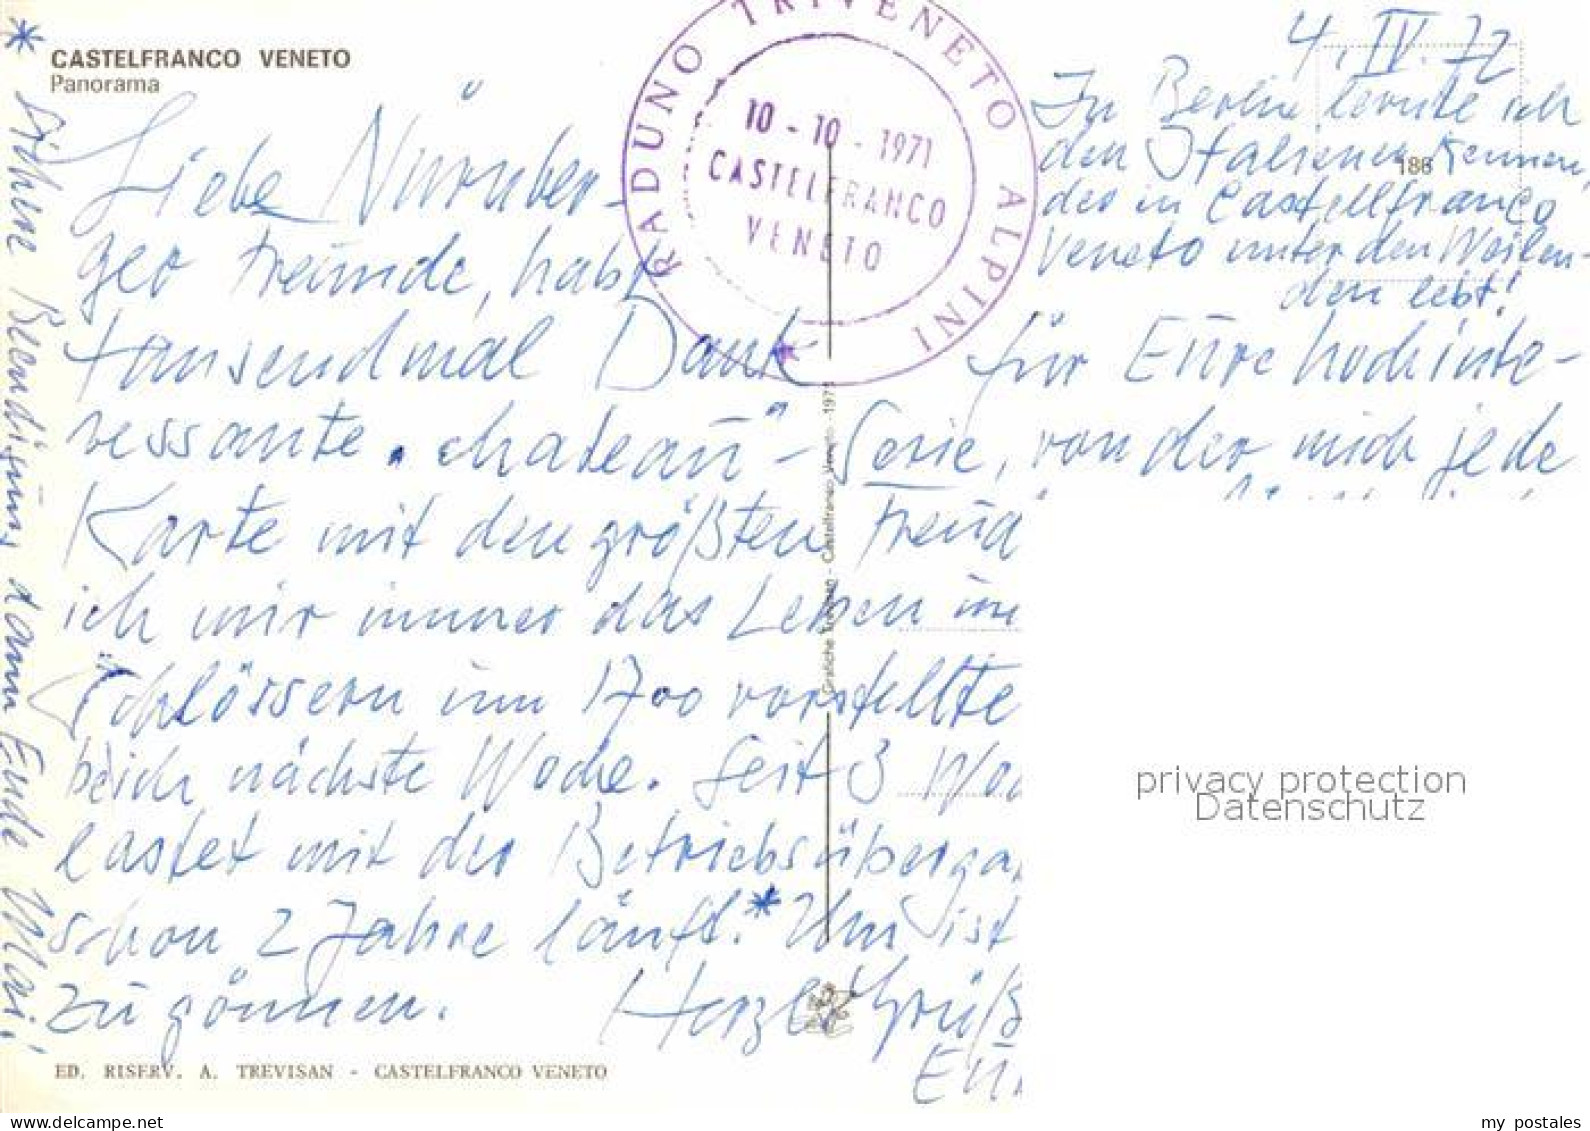 CASTELFRANCO VENETO
Panorama
RADUNO TRIVENETO ALPINI
10-10-1971
CASTELFRANCO
VENETO
4. IV. 72
In Berlin lernte ich
den Italiener kennen,
186
der in Castellfranco
Veneto unter den
den lebt!
Liebe Nürnber-
ger Freunde, habt
tausendmal Dank für Eure hochinte-
ressante "chateau"-Serie, von der mich jede
Karte mit den größten Freud
ich mir immer das Leben in
Schlössern um 1700 vorstellte
nächste Woche. Seit 3 Woc
lastet mit der Betriebsüberga
schon 2 Jahre läuft.* Uns ist
zu gönnen.
Herzl. Grüß
Eu
* Beendigung dann Ende Mai!
Grafiche Trevisan - Castelfranco Veneto - 1971
ED. RISERV. A. TREVISAN - CASTELFRANCO VENETO
privacy protection
Datenschutz
my postales